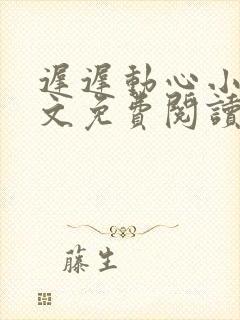 遲遲動心小
文免費閱讀
藤生